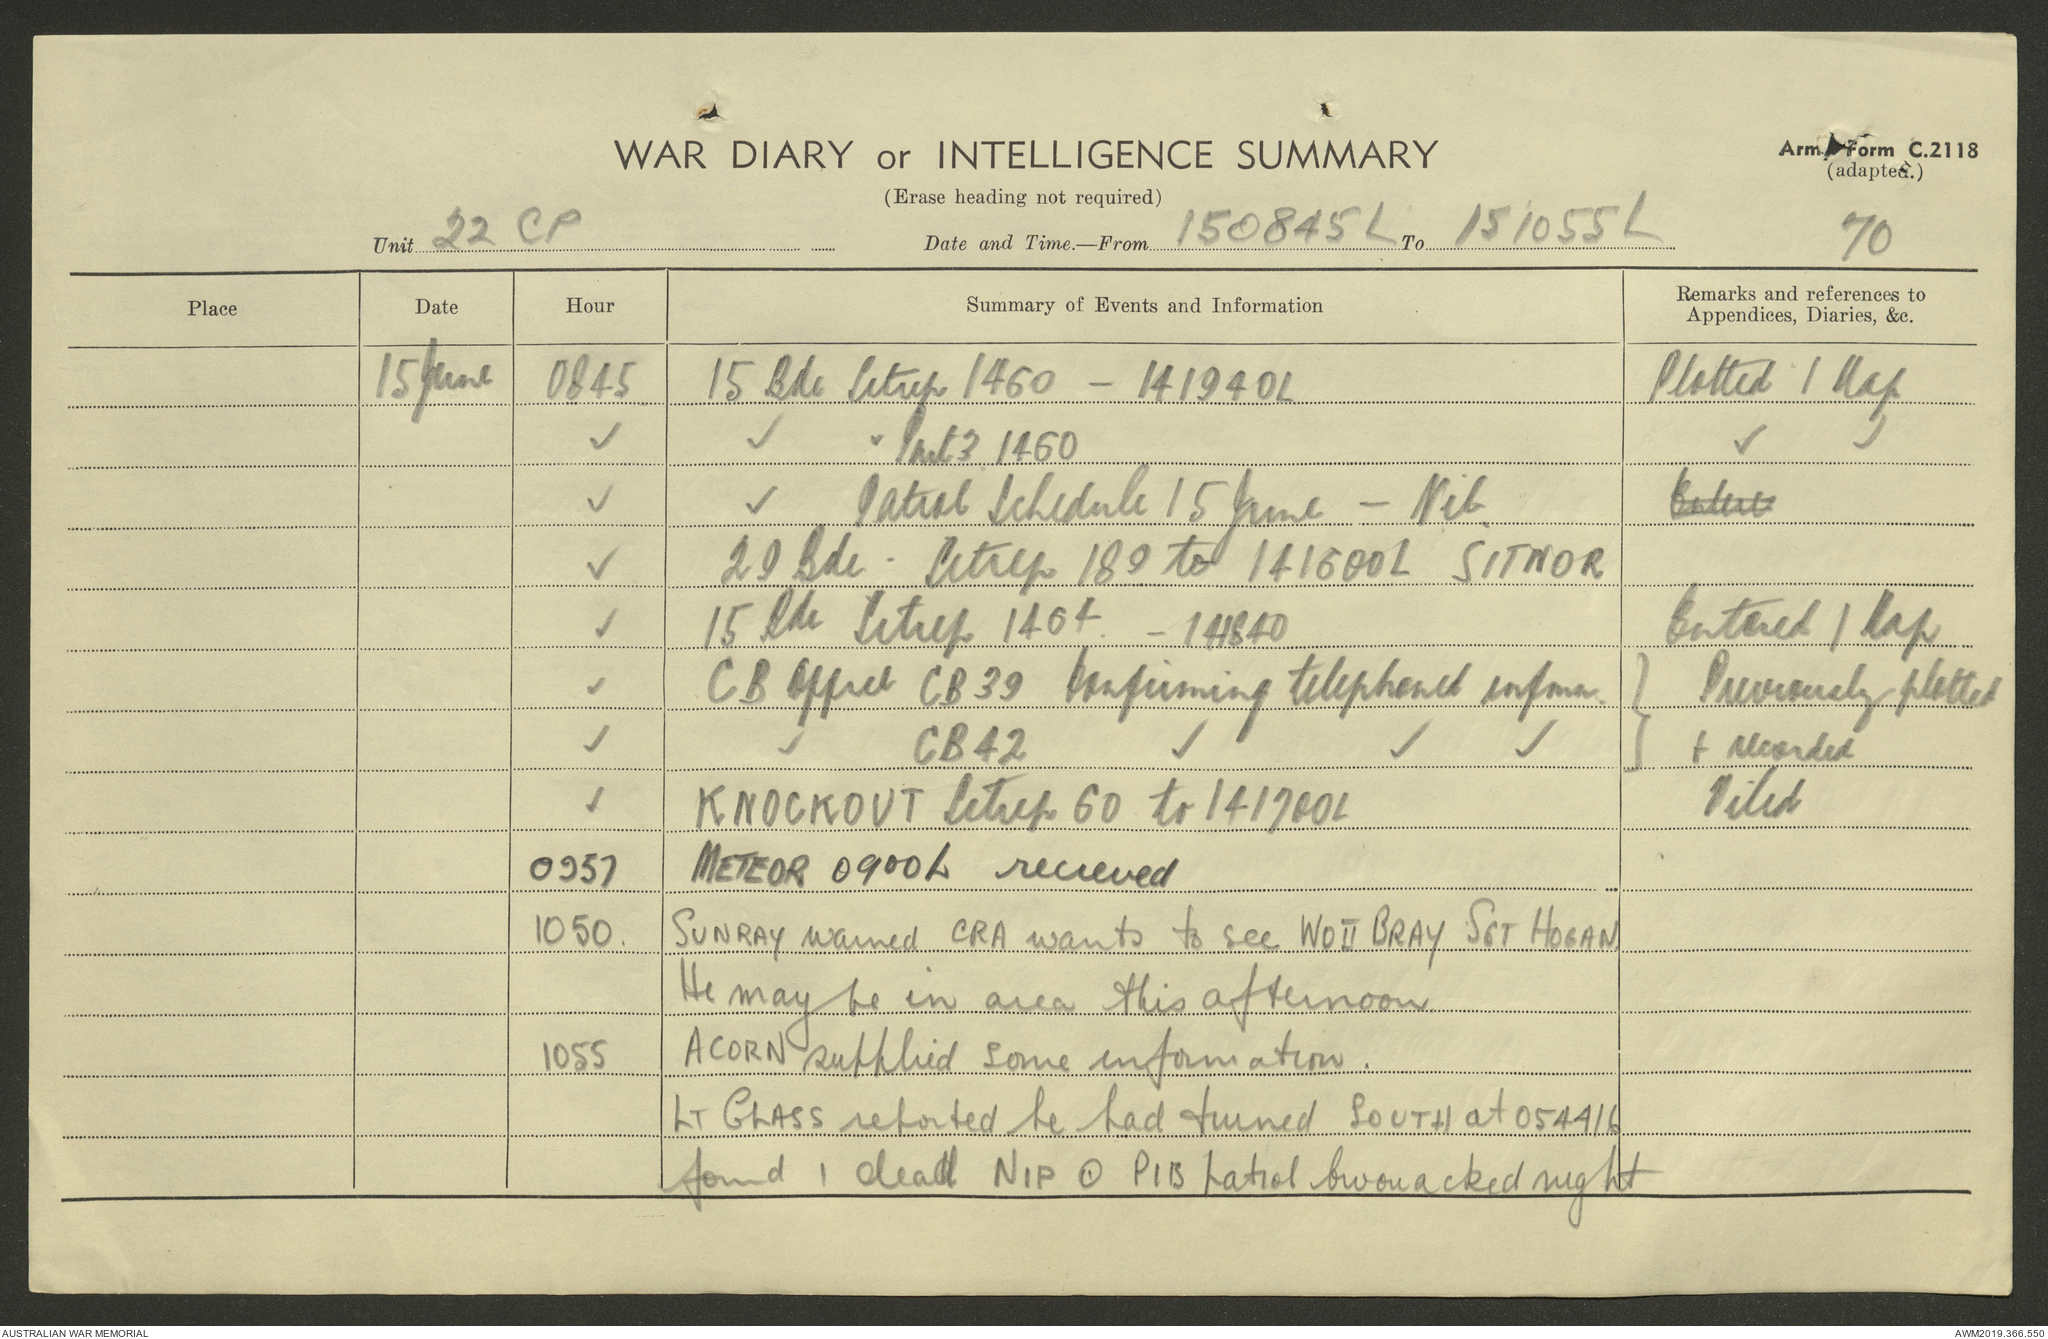 WAR DIARY or INTELLIGENCE SUMMARY
Army Form C.2118
(Erase heading not required)
(adapted.)
Unit 22 CP Date and Time.—From 150845L To 151055L 70
Place Date Hour Summary of Events and Information Remarks and references to
Appendices, Diaries, &c.
15 June 0845 15 Bde Sitrep 1460 - 141940L Plotted 1 Map
✓ ✓ " Part 3 1460 ✓ ✓
✓ ✓ Patrol Schedule 15 June - Nil.
✓ 29 Bde - Sitrep 189 to 141600L SITNOR
✓ 15 Bde Sitrep 1464 - 141840 Entered 1 Map
✓ CB Offrel CB39 Confirming telephoned informn. Previously plotted
✓ ✓ CB42 ✓ ✓ ✓ + recorded
✓ KNOCKOUT Sitrep 60 to 141700L Filed
0957 METEOR 0900L recieved
1050. SUNRAY warned CRA wants to see WOII BRAY SGT HOGAN
He may be in area this afternoon.
1055 ACORN supplied some information.
LT GLASS reported he had turned SOUTH at 054416
found 1 dead NIP ⊙ PIB patrol bivouacked night
AUSTRALIAN WAR MEMORIAL AWM2019.366.550